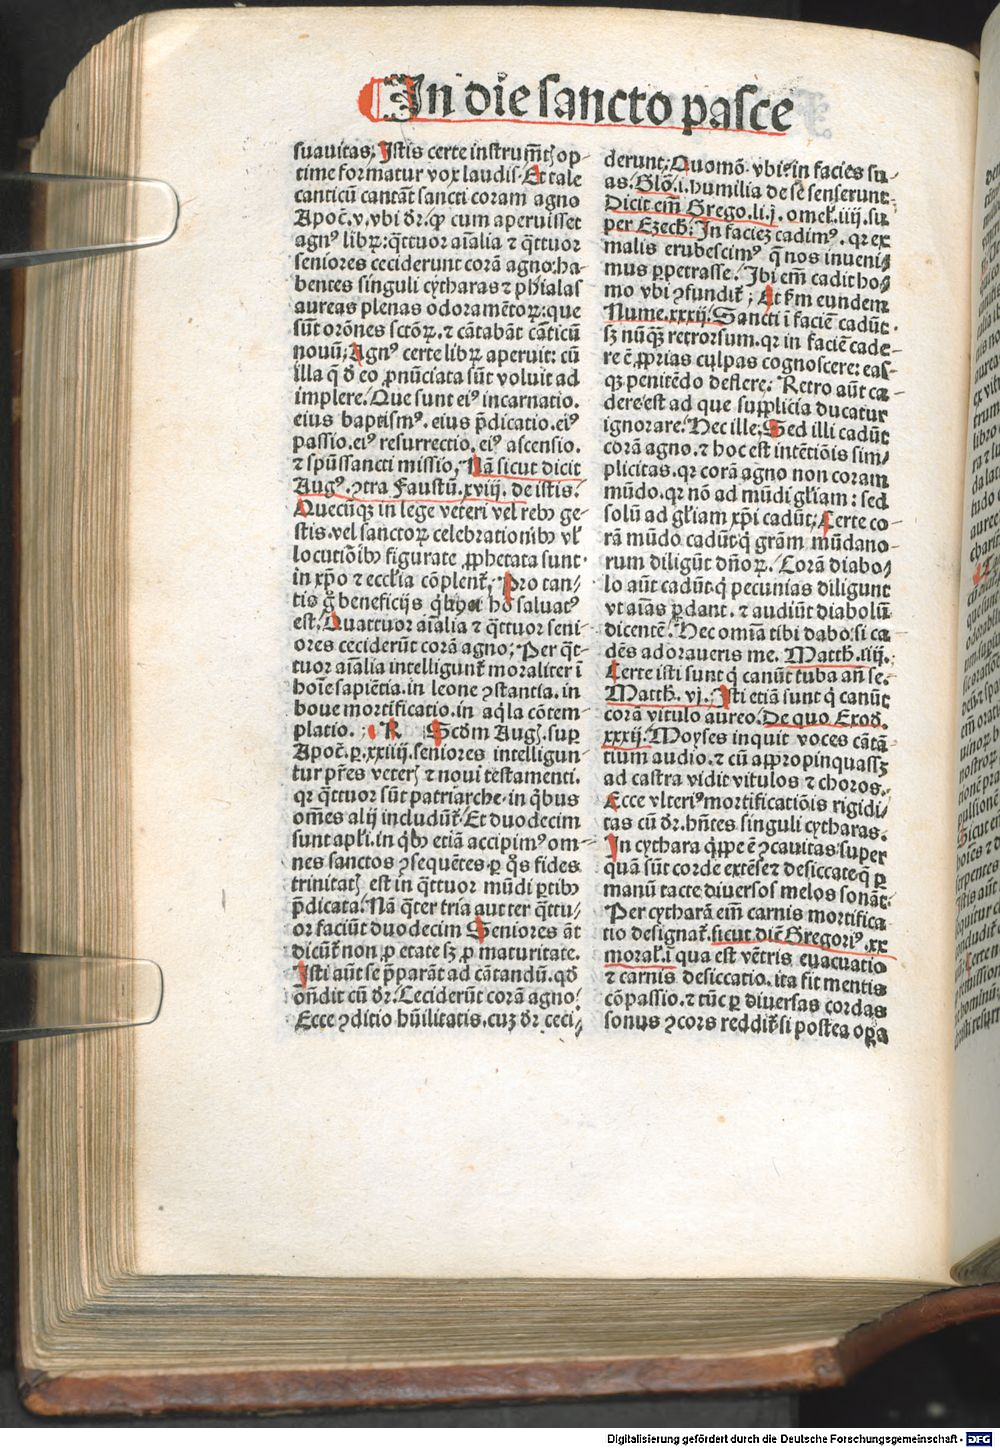 In die sancto pasce
suauitas. Istis certe instrumētꝭ op-
time formatur vox laudis. Et tale
canticū cantāt sancti coram agno
Apoc̄. v. vbi dr̄. ꝙ cum aperuisset
agnꝰ libꝝ: q̄ttuor aīalia ⁊ q̄ttuor
seniores ceciderunt corā agno: ha-
bentes singuli cytharas ⁊ phialas
aureas plenas odoramētoꝝ: que
sūt orōnes sctōꝝ. ⁊ cātabāt cāticū
nouū. Agnꝰ certe libꝝ aperuit: cū
illa q̄ d̄ eo ꝓnūciata sūt voluit ad
implere. Que sunt eiꝰ incarnatio.
eius baptismꝰ. eius p̄dicatio. eiꝰ
passio. eiꝰ resurrectio. eiꝰ ascensio.
⁊ spūssancti missio. Nā sicut dicit
Augꝰ. ꝯtra Faustū. xviij. de istis.
Quecūqꝫ in lege veteri vel rebꝰ ge-
stis. vel sanctoꝝ celebrationibꝰ vl̄
locutiōibꝰ figurate ꝓphetata sunt.
in xp̄o ⁊ eccl̄ia cōplent̄. Pro tan-
tis g̊ beneficijs hō saluatꝰ
est. Quattuor aīalia ⁊ q̄ttuor seni-
ores ceciderūt corā agno. Per q̄t-
tuor aīalia intelligunt̄ moraliter ī
hoīe sapiētia. in leone ꝯstantia. in
boue mortificatio. in aq̄la cōtem-
platio. R Scd̄m Aug. sup
Apoc̄. p. xxiiij. seniores intelligun-
tur pr̄es veterꝭ ⁊ noui testamenti.
qꝛ q̄ttuor sūt patriarche. in q̄bus
om̄es alij includūt̄. Et duodecim
sunt apl̄i. in q̄bꝰ etiā accipimꝰ om-
nes sanctos ꝯsequētes. ꝑ q̄s fides
trinitatꝭ est in q̄ttuor mūdi ꝑtibꝰ
p̄dicata. Nā q̄ter tria aut ter q̄ttu-
or faciūt duodecim. Seniores āt
dicūt̄ non ꝑ etate sꝫ ꝑ maturitate.
Isti aūt se p̄parāt ad cātandū. qd̄
ōndit cū dr̄. Ceciderūt corā agno.
Ecce ꝯditio hūilitatis. cuꝫ dr̄ ceci-
derunt. Quomō. vbi? in facies su-
as. Glo. i. humilia de se senserunt.
Dicit em̄ Grego. li. j. omel. iiij. su
per Ezech. In facieꝫ cadimꝰ. qꝛ ex
malis erubescimꝰ q̄ nos inueni-
mus ꝑpetrasse. Ibi em̄ cadit ho-
mo vbi ꝯfundit̄; Et s̄m eundem
Nume. xxxij. Sancti ī faciē cadūt.
sꝫ nūqꝫ retrorsum. qꝛ in faciē cade-
re ē ꝓprias culpas cognoscere: eas-
qꝫ penitēdo deflere. Retro aūt ca-
dere est ad que supplicia ducatur
ignorare. Hec ille. Sed illi cadūt
corā agno. ⁊ hoc est intētiōis sim-
plicitas. qꝛ corā agno non coram
mūdo. qꝛ nō ad mūdi gl̄iam: sed
solū ad gl̄iam xp̄i cadūt. Certe co-
rā mūdo cadūt q̄ grām mūdano-
rum diligūt dn̄oꝝ. Corā diabo-
lo aūt cadūt q̄ pecunias diligunt
vt aīas ꝑdant. ⁊ audiūt diabolū
dicentē. Hec omīa tibi dabo. si ca-
dēs adoraueris me. Matth. iiij.
Certe isti sunt q̄ canūt tuba an̄ se.
Matth. vj. Isti etiā sunt q̄ canūt
corā vitulo aureo. De quo Exod.
xxxij. Moyses inquit voces cātā-
tium audio. ⁊ cū appropinquassꝫ
ad castra vidit vitulos ⁊ choros.
Ecce vlteriꝰ mortificatiōis rigidi-
tas cū dr̄. hn̄tes singuli cytharas.
In cythara q̄ppe ē ꝯcauitas super
quā sūt corde extēse ⁊ desiccate q̄ ꝑ
manū tacte diuersos melos sonāt.
Per cytharā em̄ carnis mortifica
tio designat̄. sicut diē Gregoriꝰ. xx
moral. ī qua est vētris euacuatio
⁊ carnis desiccatio. ita fit mentis
cōpassio. ⁊ tūc ꝑ diuersas cordas
sonus ꝯcors reddit̄ si postea opa
Digitalisierung gefördert durch die Deutsche Forschungsgemeinschaft - DFG